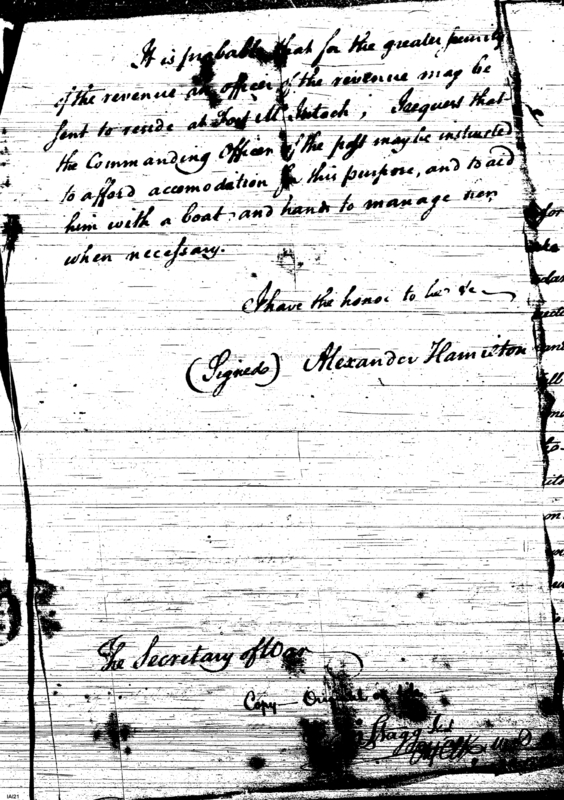 It is probable that for the greater security
of the revenue an officer of the revenue may be
sent to reside at Fort McIntosh; I request that
the Commanding Officer of the post may be instructed
to afford accomodation for this purpose, and to aid
him with a boat and hands to manage her
when necessary.
I have the honor to be &c
(Signed) Alexander Hamilton
The Secretary of War
Copy — Original on file
Stagg